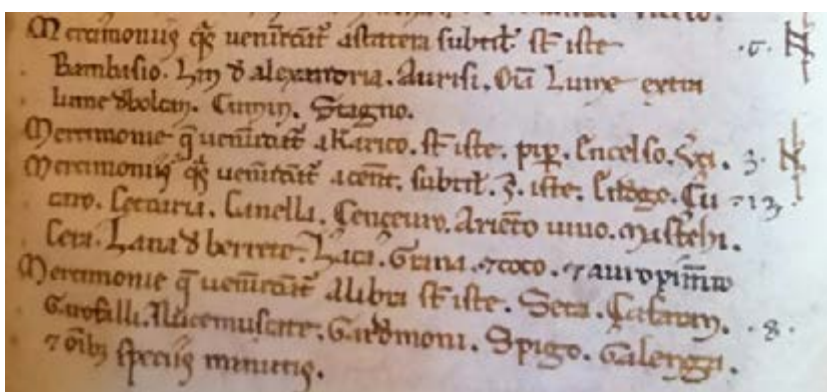 Mercimoniis q̄s uenūdat̄ astatera subtil' st̄ iste
Bambasio. Lin d alexandria. Lume
lume d bolcan. Cumin. Stagno.
Mercimonie q̄ uenūdat̄ akarico. st̄ iste. pip. Encenso. 3.
Mercimoniis q̄s uenūdat̄ acent. subtil'. iste. Endego. Çu 13
caro. Canella. Çençeuro. Ariēto uiuo. mastechi.
Cera. Lana d berrete. Laca. Grana. 7 coco. 7 auropim̄to
Mercimonie q̄ uenūdat̄ alibra st̄ iste. Seta. Çafaran. ·8·
Garofalli. Nucemuscate. Gardmoni. Spigo. Galenga.
7 oīb; speciis minutis.